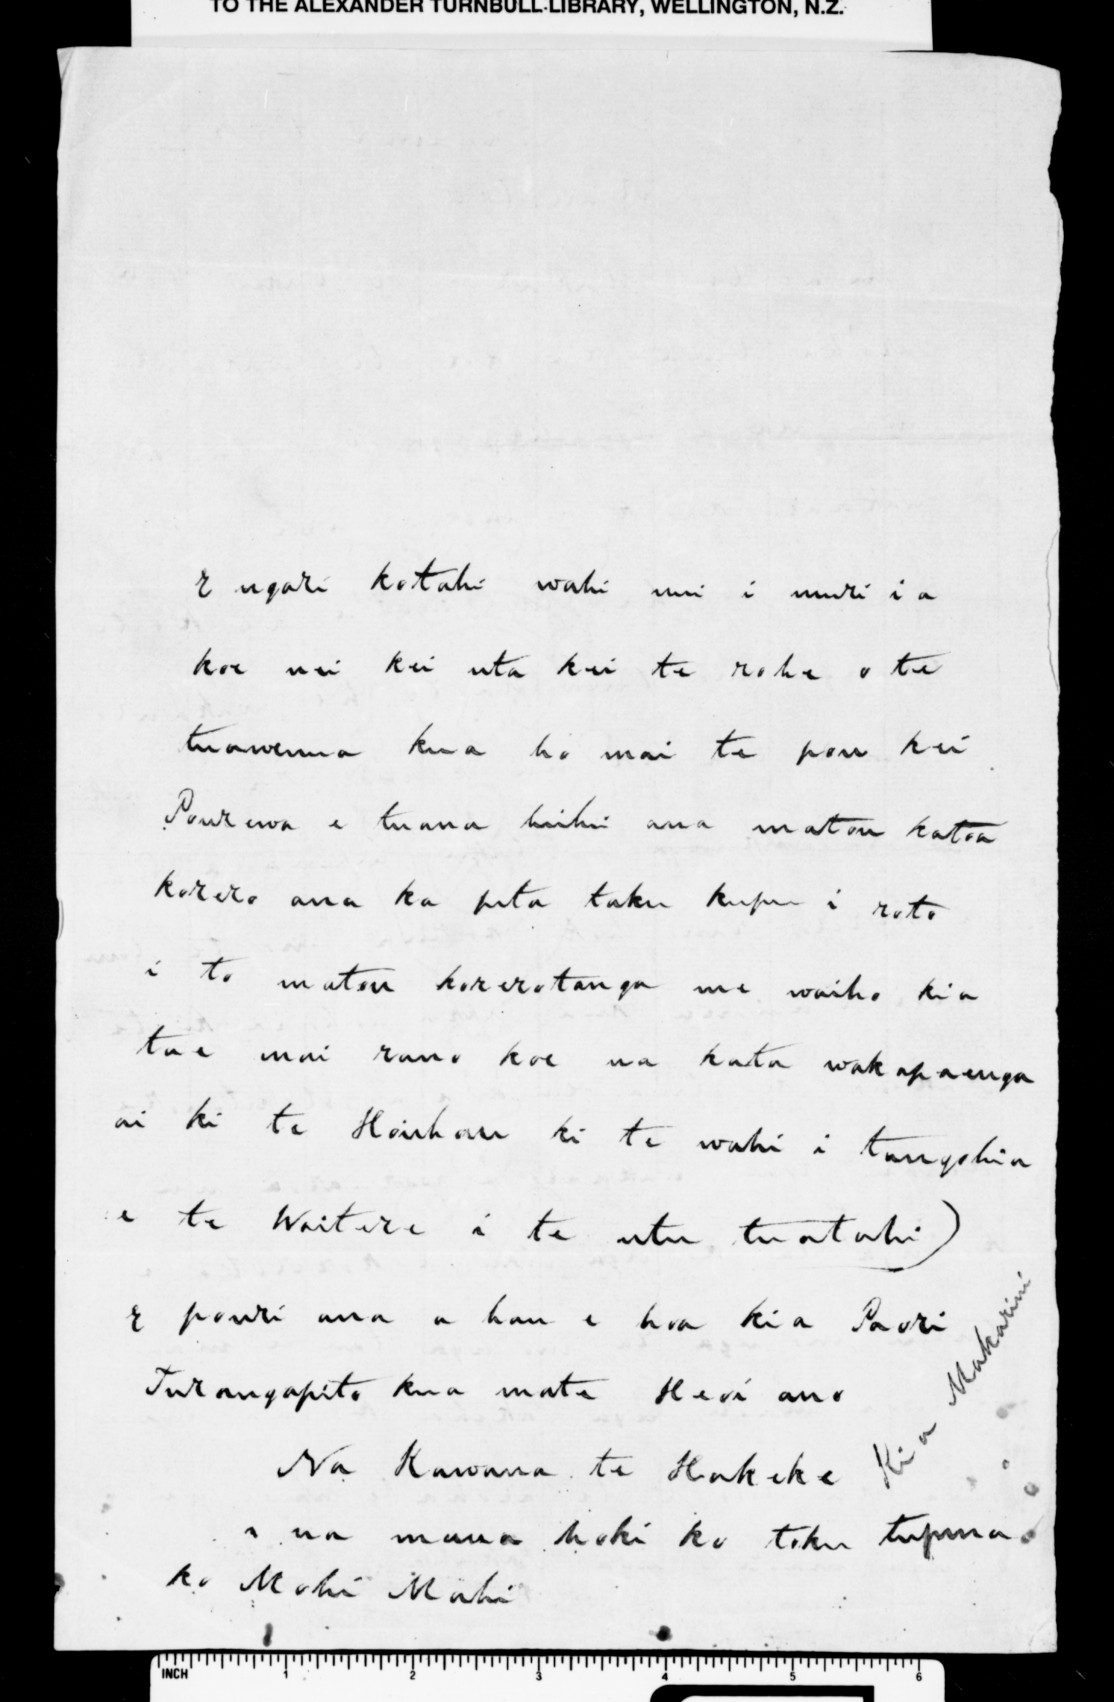 TO THE ALEXANDER TURNBULL LIBRARY, WELLINGTON, N.Z.
E ngari kotahi wahi nui i muri i a
koe nei kei uta kei te rohe o te
tuawenua kua ho mai te pou kei
Pourewa e tuana huihui ana matou katoa
korero ana ka puta taku kupu i roto
i to matou korerotanga me waiho kia
tae mai rano koe na kata wakapaenga
ai ki te Hauhau ki te wahi i tangohia
e te Waitere i te utu tuatahi)
E pouri ana a hau e hoa kia Paori
Turangapito kua mate Heoi ano
Na Kawana te Hakeke
i na maua hoki ko toku tupuna
ko Mohi Mahi
Ki a Makarini
INCH 1 2 3 4 5 6